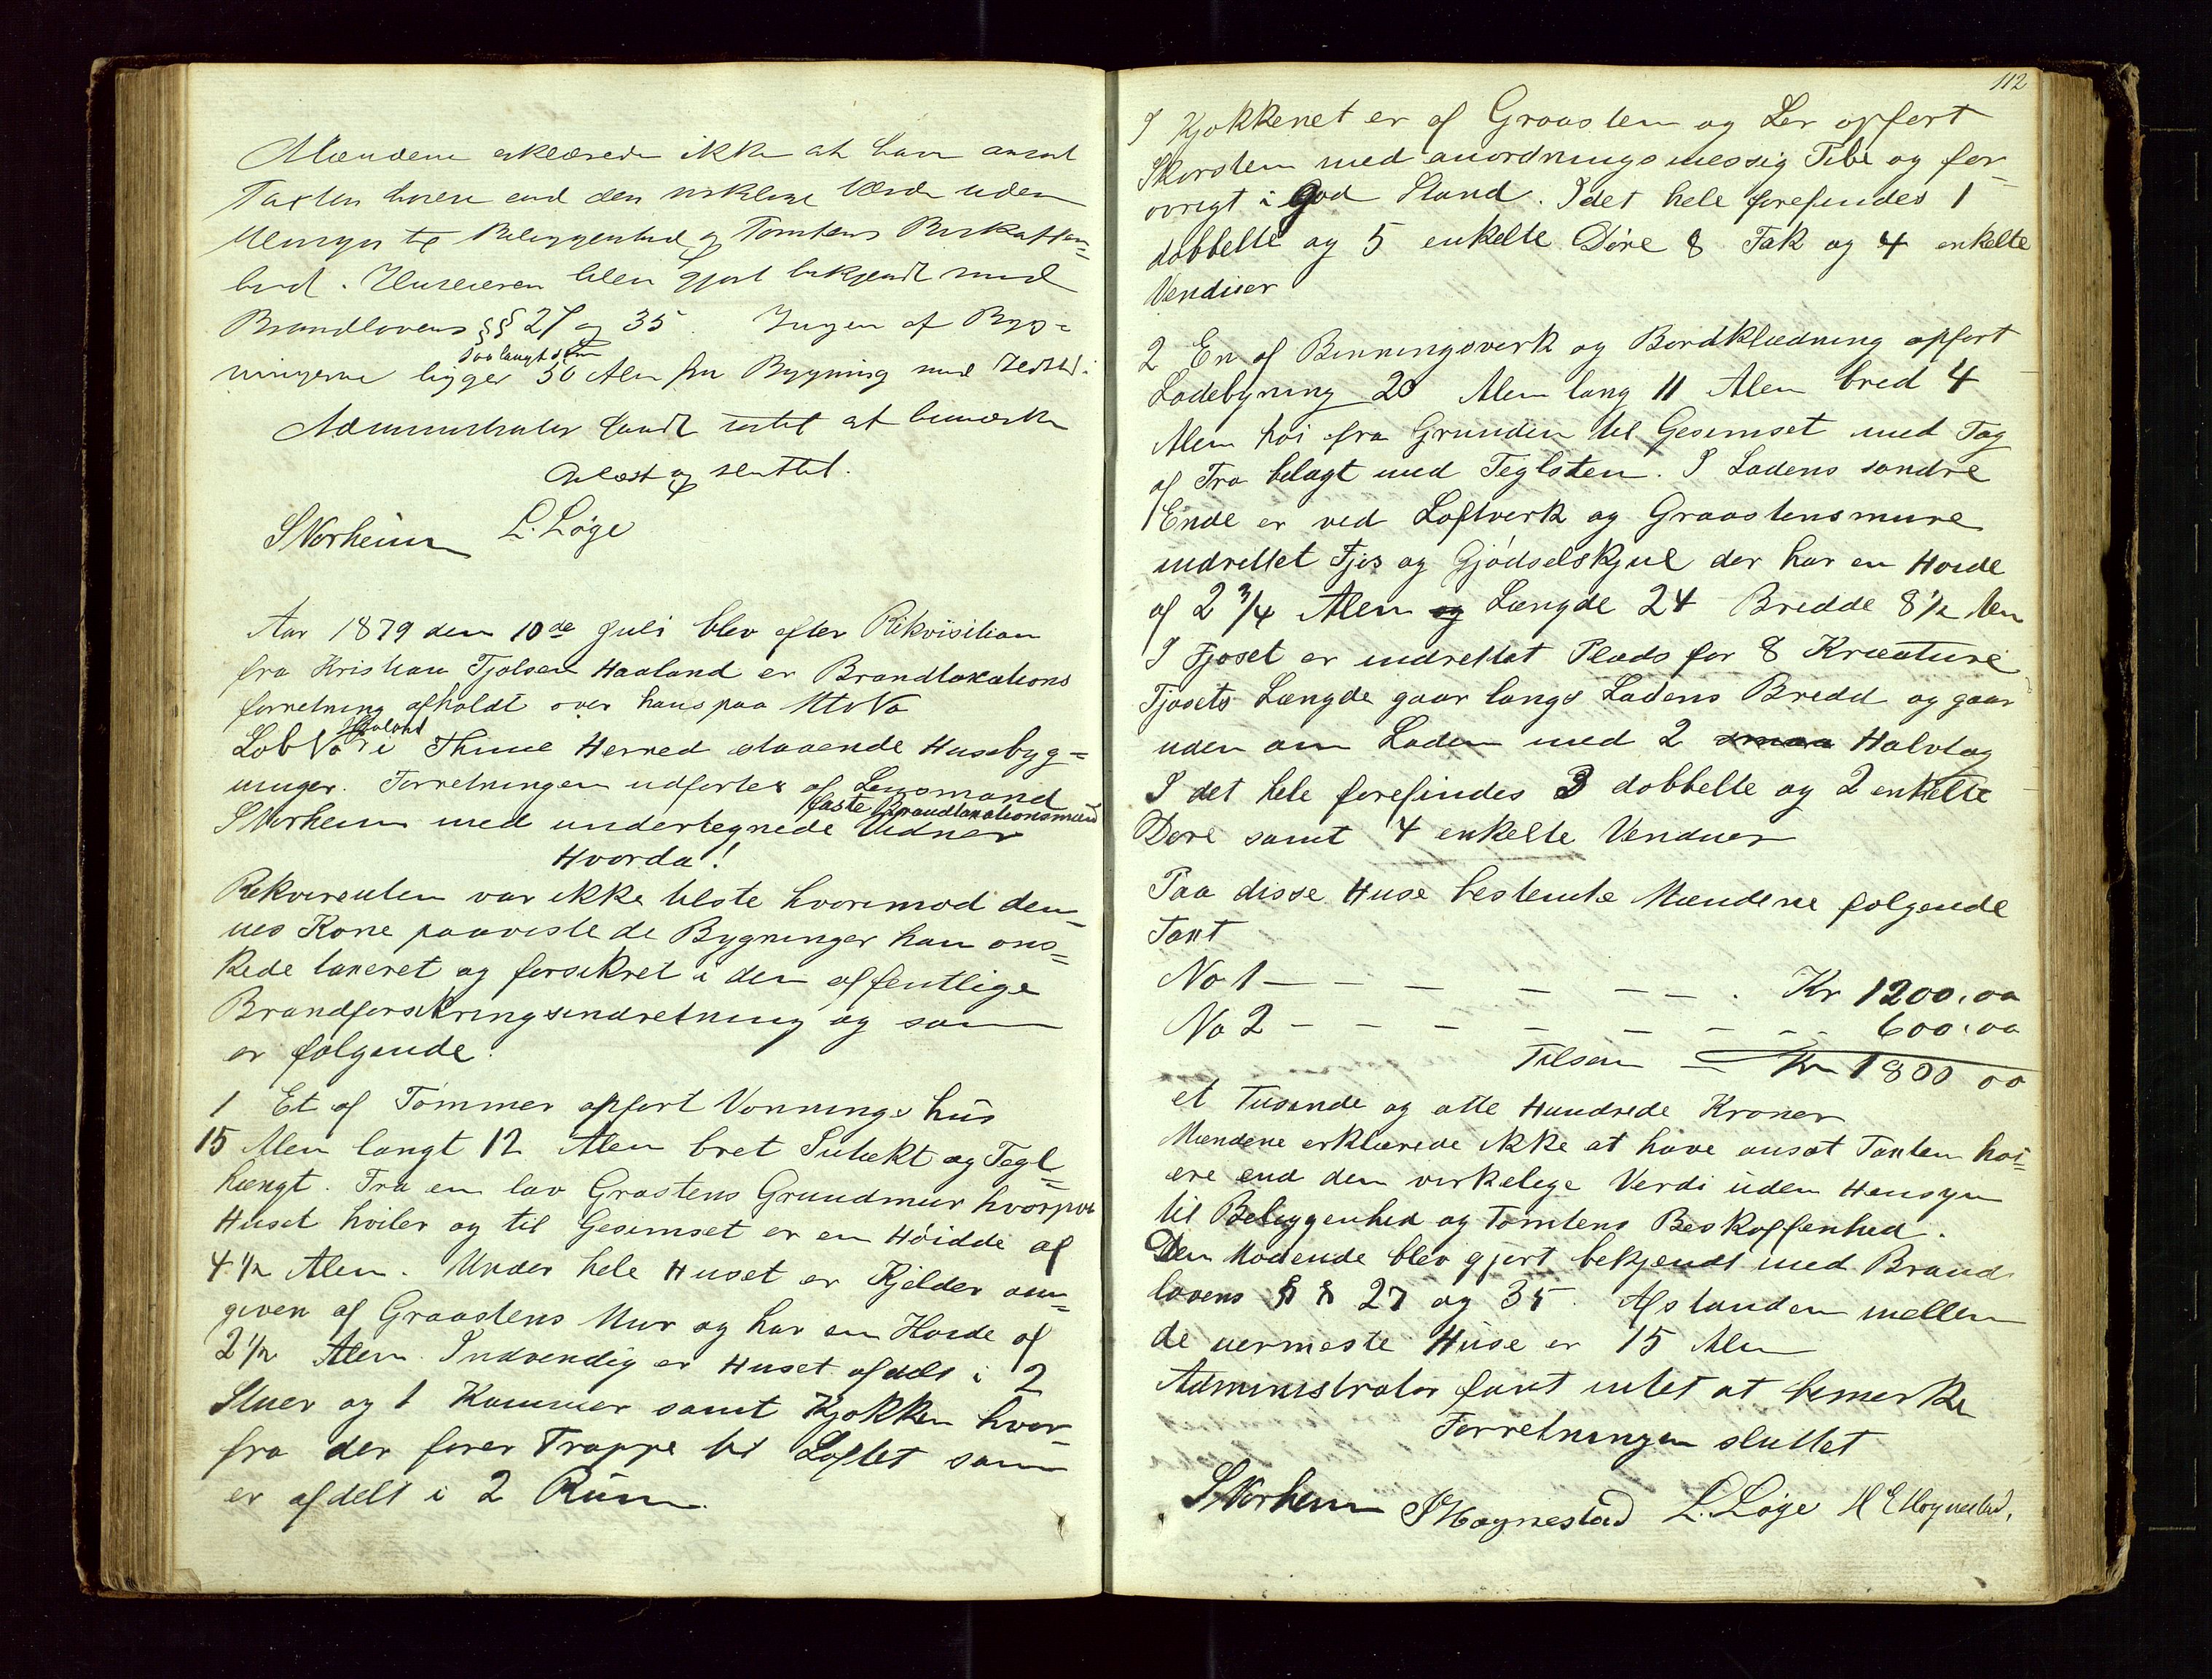 Mændene erklærede ikke at have ansat
Taxten høiere end den virkelige Værdi uden
Hensyn til Beliggenhed og Tomtens Beskaffen=
hed. Huseieren blev gjort bekjendt med
Brandlovens §§ 27 og 35. Ingen af Byg=
saa langt som
ningerne ligger 50 Alen fra Bygning med Ildsted.
Administrator fandt intet at bemærke
Oplæst og sluttet.
S Norheim L. Löge
Aar 1879 den 10de Juli blev efter Rikvisition
fra Kristian Tjolsen Haaland er Brandtaxations
forretning afholdt over hans paa Mts No
Haaland
Lob No i Thime Herred staaende Husebyg=
ninger. Forretningen udfortes af Lensmand
faste Brandtaxationsmænd
S Norheim med undertegnede Vidner
Hvorda!
Rekvirenten var ikke tilste hvorimod den=
nes Kone paaviste de Bygninger han ons=
kede taxeret og forsikret i den offentlige
Brandforsikringsindretning og som
er folgende:
1 Et af Tömmer opfort Vonnings hus
15 Alen langt 12 Alen bret Sutækt og Tegl=
hængt. Fra en lav Grastens Grundmur hvorpaa
Huset hviler og til Gesimset er en Höidde af
4 1/2 Alen. Under hele Huset er Kjelder om=
given af Graastens Mur og har en Hoide af
2 1/2 Alen. Indvendig er Huset afdelt i 2
Stuer og 1 Kammer samt Kjokken hvor=
fra der forer Trappe til Loftet som
er afdelt i 2 Rum.
112
I Kjokkenet er af Graasten og Ler opfort
Skorsten med anordningsmessig Pibe og for=
ovrigt i God Stand. I det hele forefindes 1
dobbelte og 5 enkelte Döre 8 Fak og 4 enkelte
Venduer
2 En af Binningsverk og Bordklædning opfort
Ladebyning 20 Alen lang 11 Alen bred 4
Alen hoi fra Grunden til Gesimset med Tag
af Træ belagt med Teglsten. I Ladens sondre
Ende er ved Loftverk og Graastensmure
indrettet Fjos og Gjödselskjul der har en Hoide
af 2 3/4 Alen og Længde 24 Bredde 8 1/2 Alen
I Fjoset er indrettet Plads for 8 Kreature
Fjosets Længde gaar langs Ladens Bredd og gaar
uden om Laden med 2 smaa Halvtag
I det hele forefindes 3 dobbelte og 2 enkelte
Dore samt 4 enkelte Venduer
Paa disse Huse bestemte Mændene folgende
Taxt
No 1 — — — — — — — . Kr 1200,00
No 2 — — — — — — — — 600,00
Tilsam — Kr 1800 00
et Tusende og otte Hundrede Kroner
Mændene erklærede ikke at have ansat Taxten hoi=
ere end den virkelige Verdi uden Hensyn
til Beliggenhed og Tomtens Beskaffenhed.
Den Modende blev gjort bekjendt med Brand
lovens § § 27 og 35. Afstanden mellem
de nermeste Huse er 15 Alen
Administrator fant intet at bemerke
Forretningen sluttet
S Norheim Høgnestad L. Löge H E Høgnestad.